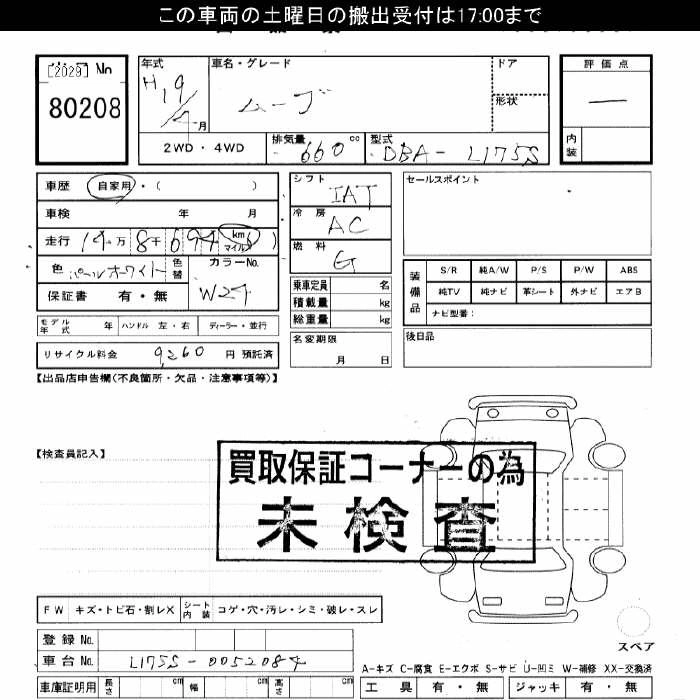 この車両の土曜日の搬出受付は17:00まで
[2029] No
80208
年式 H19/4月
車名・グレード ムーブ
ドア
形状
評価点 —
内装
2WD・4WD
排気量 660 cc
型式 DBA-L175S
車歴 自家用・( )
車検 年 月
走行 14万8千694 km マイル
色 パールホワイト 色替
カラーNo. W24
保証書 有・無
シフト IAT
冷房 AC
燃料 G
乗車定員 名
積載量 kg
総重量 kg
名変期限 月 日
セールスポイント
装備品
S/R 純A/W P/S P/W ABS
純TV 純ナビ 革シート 外ナビ エアB
ナビ型番:
後日品
モデル年式 年 ハンドル 左・右 ディーラー・並行
リサイクル料金 9,260 円 預託済
【出品店申告欄(不良箇所・欠品・注意事項等)】
【検査員記入】
買取保証コーナーの為
未検査
FW キズ・トビ石・割レX シート内装 コゲ・穴・汚レ・シミ・破レ・スレ
スペア
登録 No.
車台 No. L175S-0052084
車庫証明用 長さ cm 幅 cm 高さ cm
A-キズ C-腐食 E-エクボ S-サビ U-凹ミ W-補修 XX-交換済
工具 有・無 ジャッキ 有・無